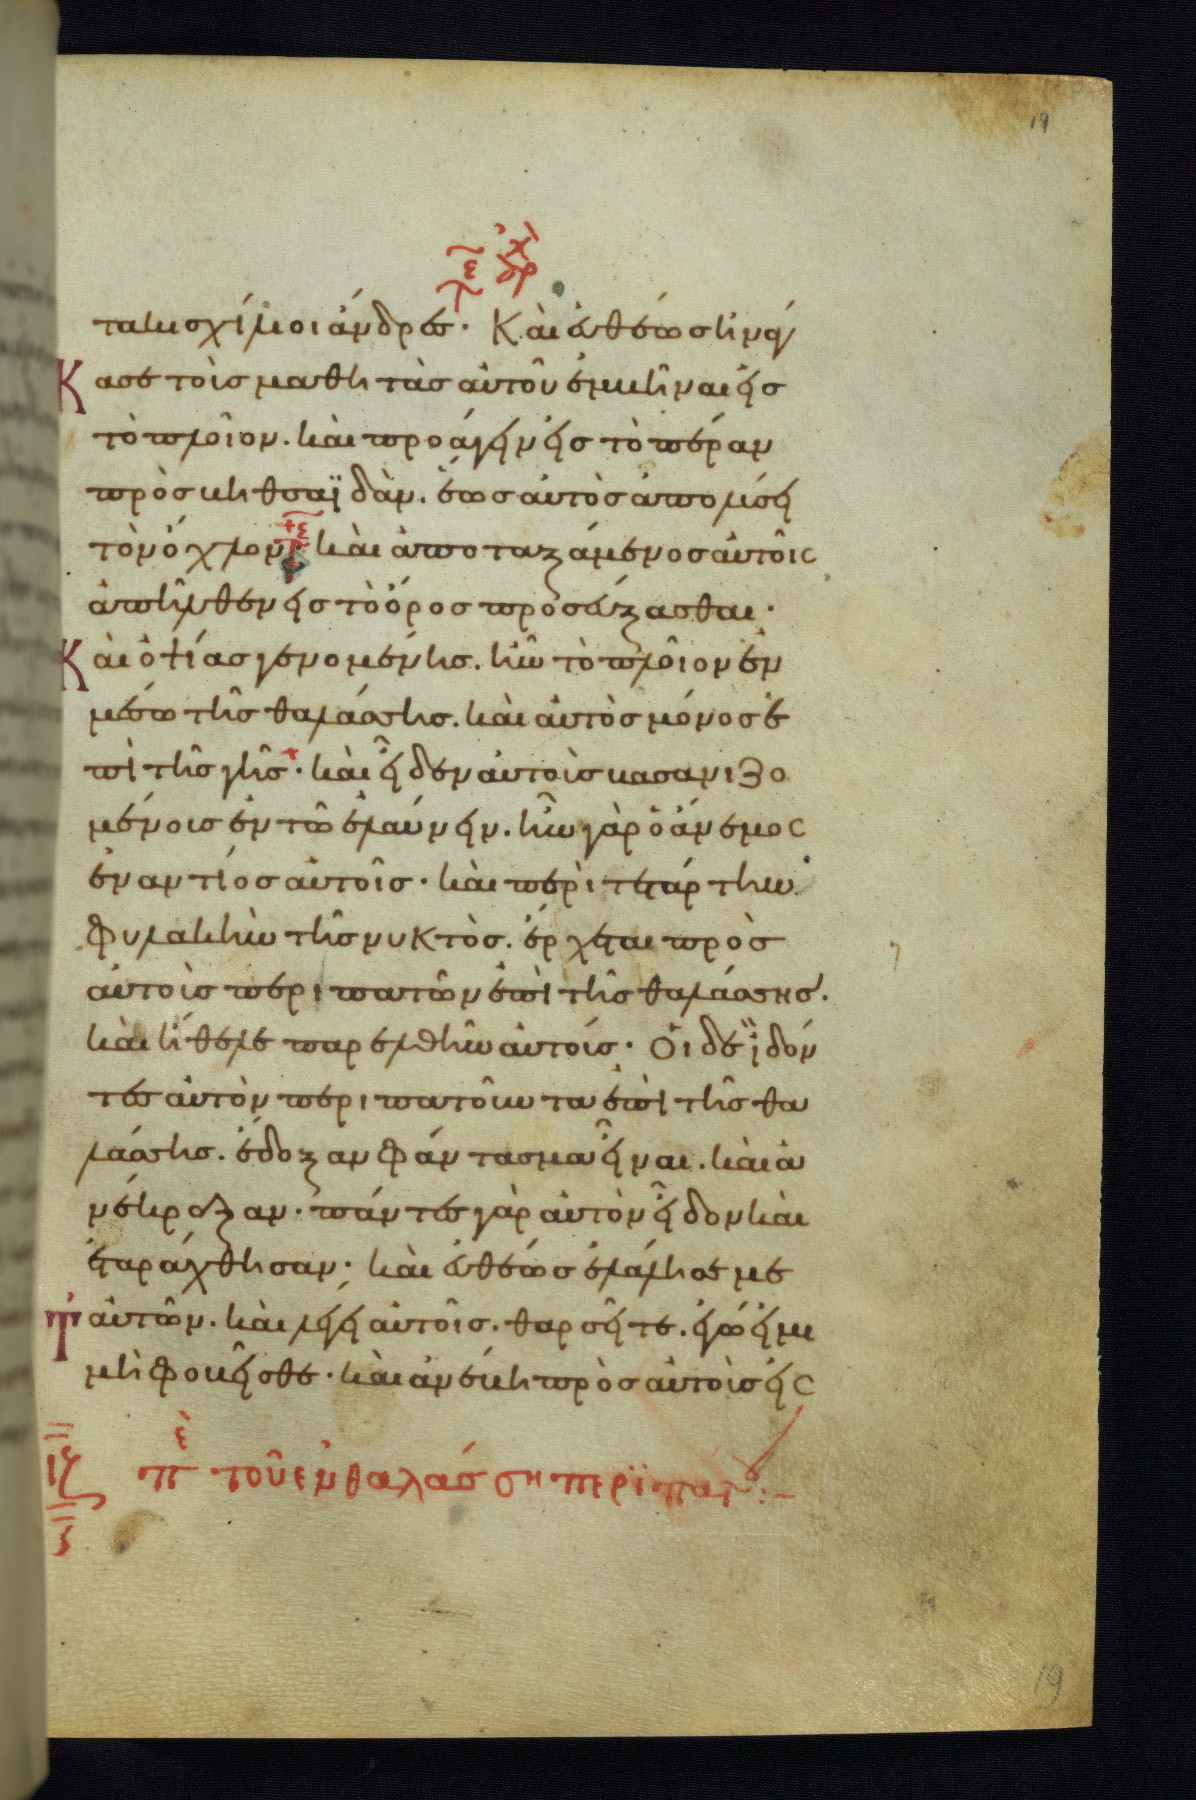 19
ταικισχίλιοι ἄνδρες· Καὶ εὐθέως ἠνάγ
κασε τοὺς μαθητὰς αὐτοῦ ἐμβῆναι εἰς
τὸ πλοῖον. καὶ προάγειν εἰς τὸ πέραν
πρὸς βηθσαϊδὰν. ἕως αὐτὸς ἀπολύσει
τὸν ὄχλον· καὶ ἀποταξάμενος αὐτοῖς
ἀπῆλθεν εἰς τὸ ὄρος προσεύξασθαι·
Καὶ ὀψίας γενομένης. ἦν τὸ πλοῖον ἐν
μέσω τῆς θαλάσσης. καὶ αὐτὸς μόνος ἐ
πὶ τῆς γῆς· καὶ εἶδεν αὐτοὺς βασανιζο
μένους ἐν τῶ ἐλαύνειν. ἦν γὰρ ὁ ἄνεμος
ἐναντίος αὐτοῖς· καὶ περὶ τετάρτην
φυλακὴν τῆς νυκτὸς. ἔρχεται πρὸς
αὐτοὺς περιπατῶν ἐπὶ τῆς θαλάσσης.
καὶ ἤθελε παρελθεῖν αὐτούς· Οἱ δὲ ἰδόν
τες αὐτὸν περιπατοῦντα ἐπὶ τῆς θα
λάσσης. ἔδοξαν φάντασμα εἶναι. καὶ ἀ
νέκραξαν· πάντες γὰρ αὐτὸν εἶδον καὶ
ἐταράχθησαν· καὶ εὐθέως ἐλάλησε με
τ᾽ αὐτῶν. καὶ λέγει αὐτοῖς. θαρσεῖτε. ἐγώ εἰμι
μὴ φοβεῖσθε· καὶ ἀνέβη πρὸς αὐτοὺς εἰς
ιζ πε τοῦ ἐν θαλάσση περϊπάτου:-
ϛ
19